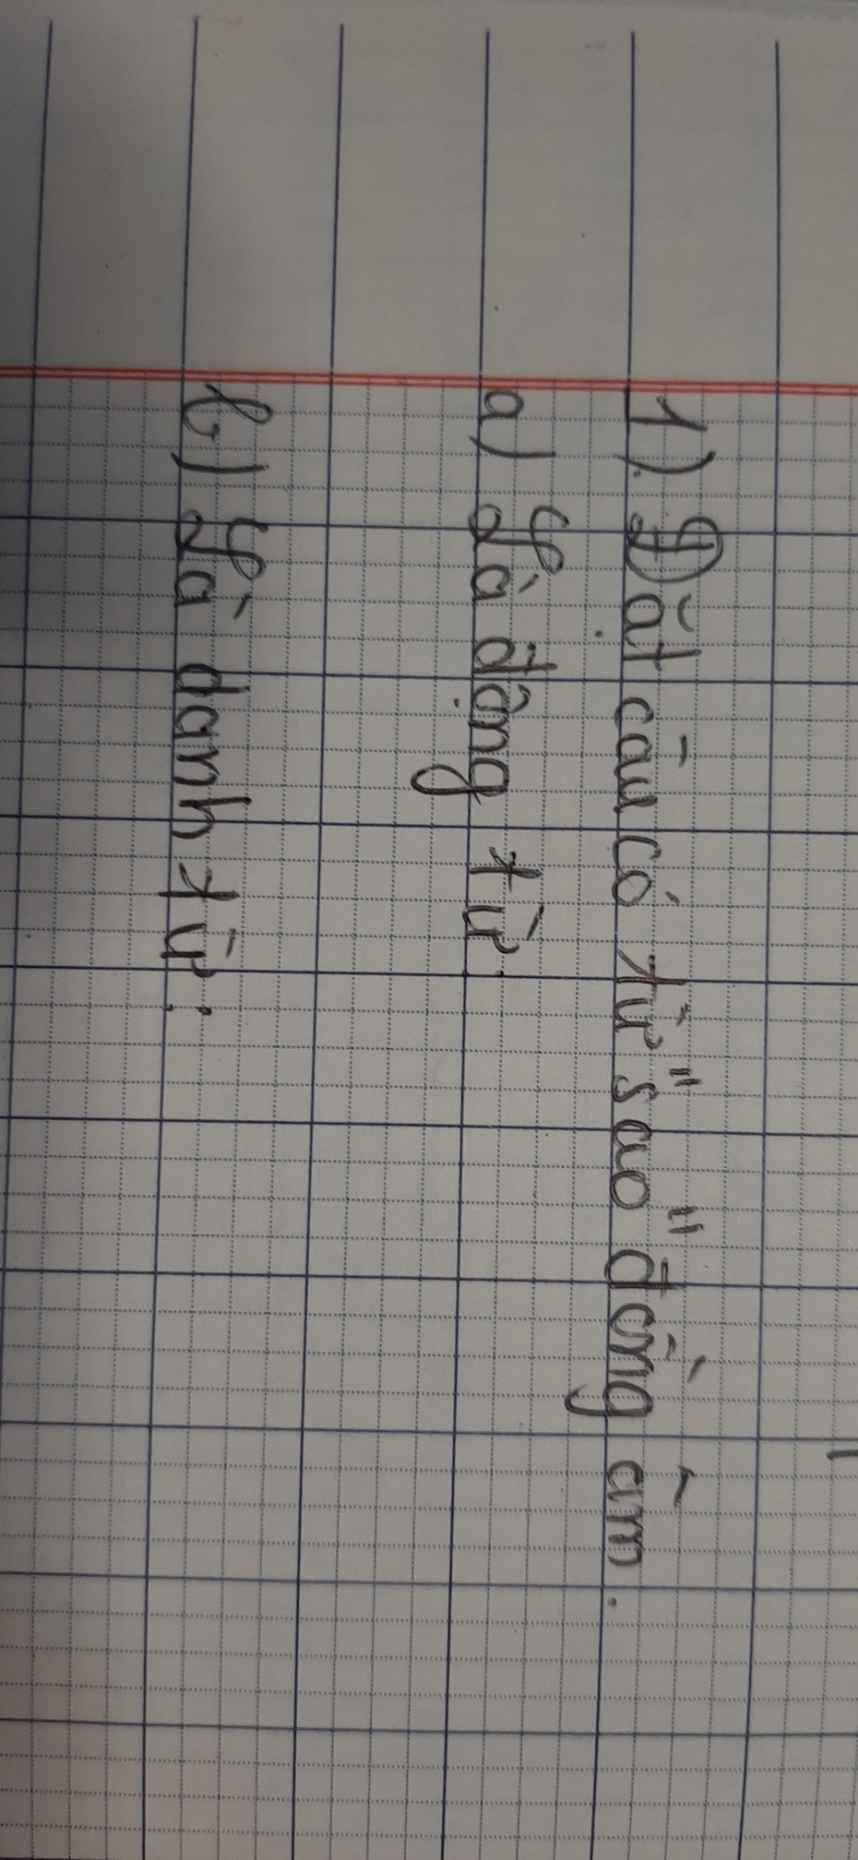 1). Đặt câu có từ "sao" đồng âm.
a) Là động từ.
b) Là danh từ: